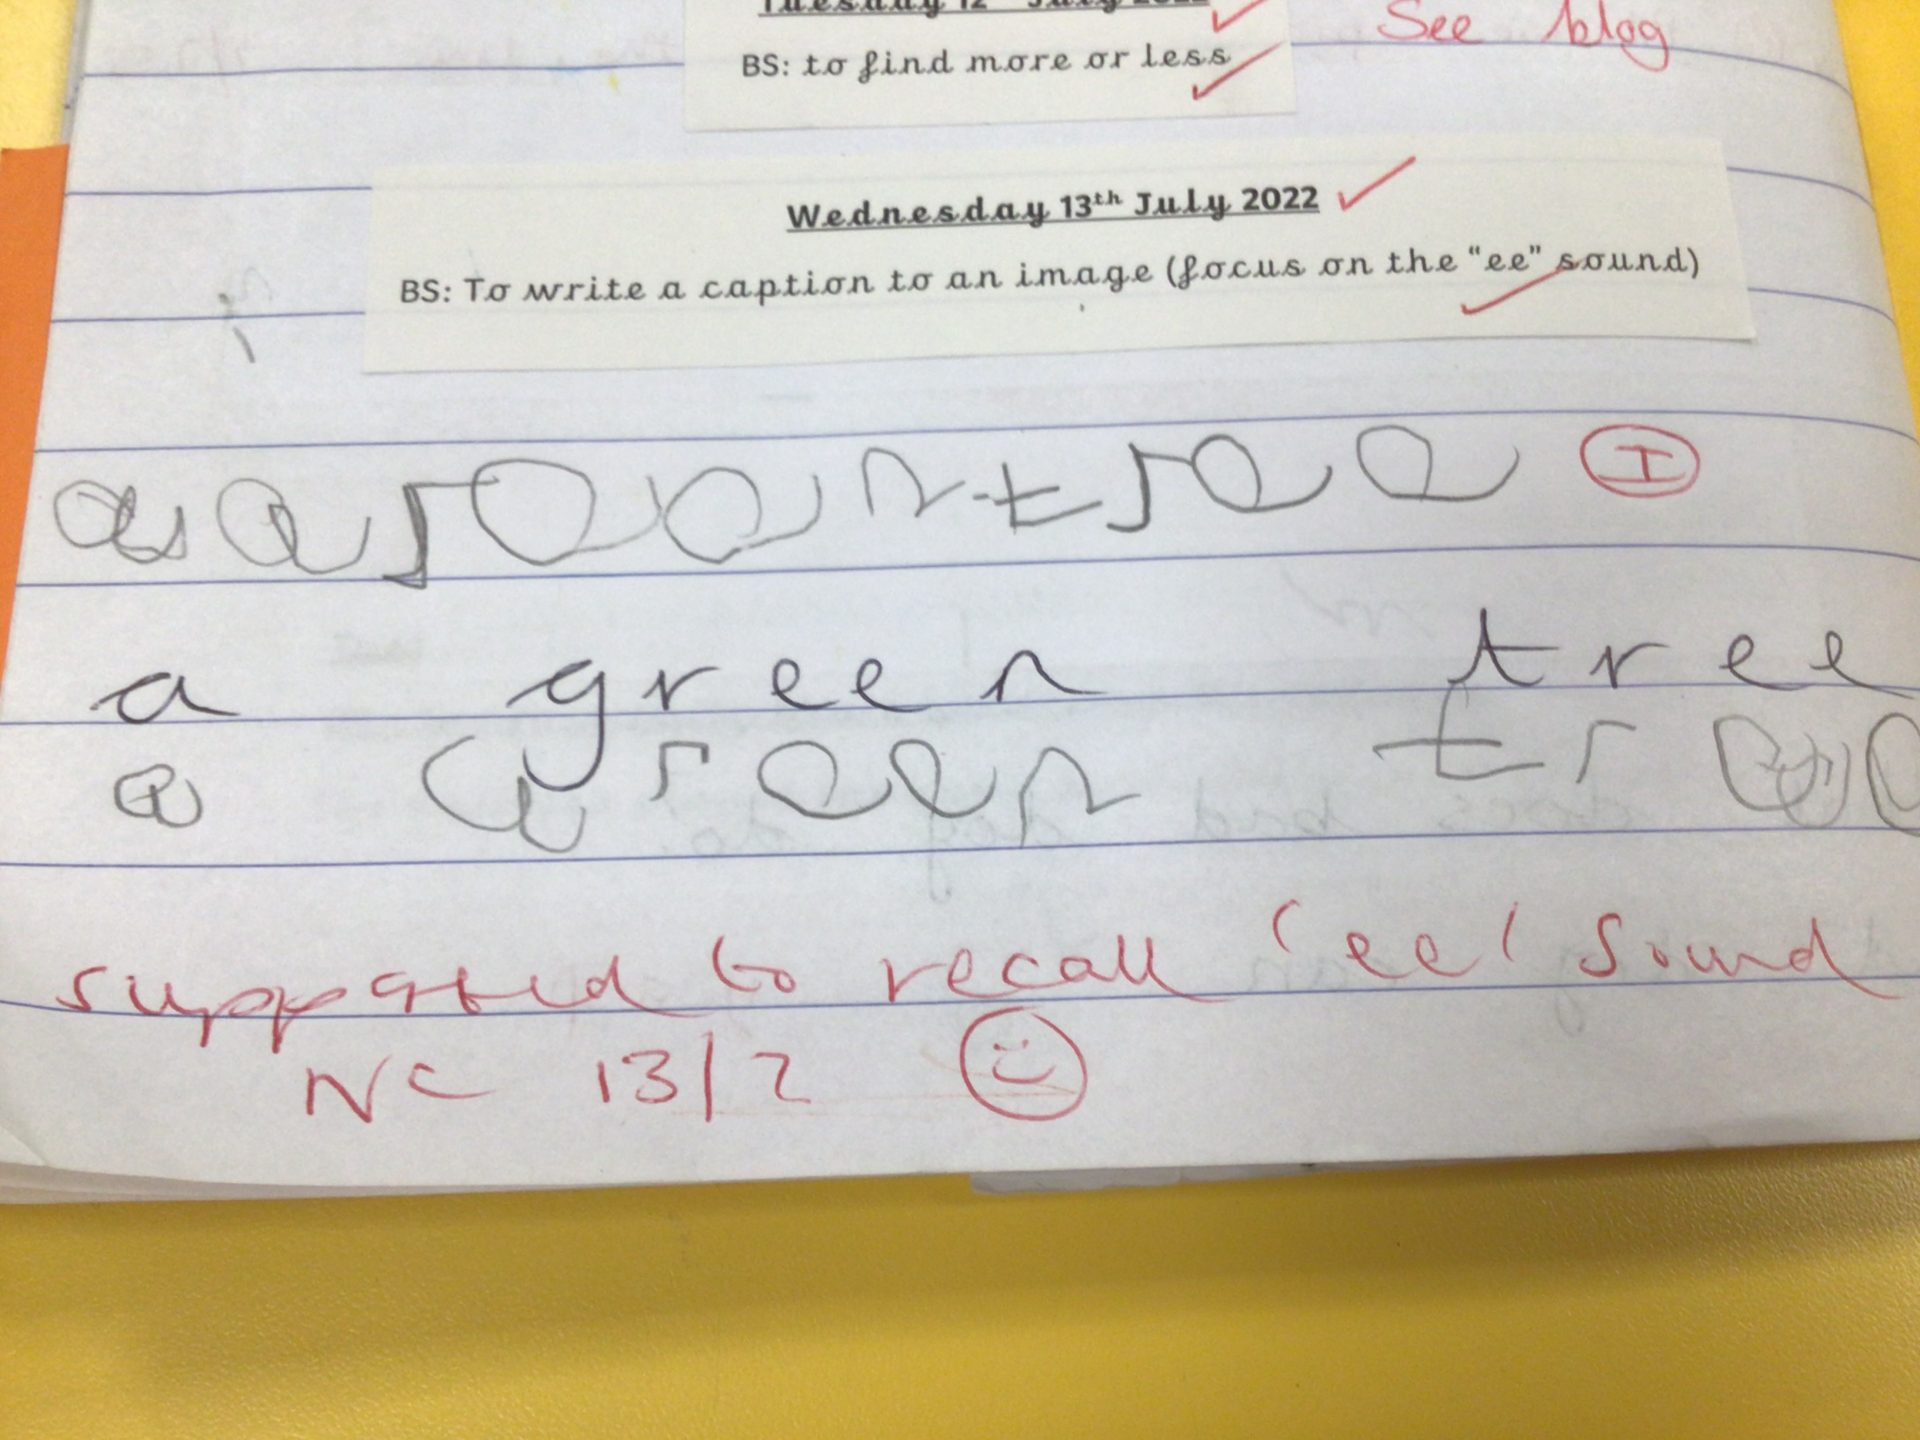 Tuesday 12th July 2022
See blog
BS: to find more or less
Wednesday 13th July 2022
BS: To write a caption to an image (focus on the "ee" sound)
a green tree I
a green tree
a green tree
supported to recall 'ee' sound
NC 13/7